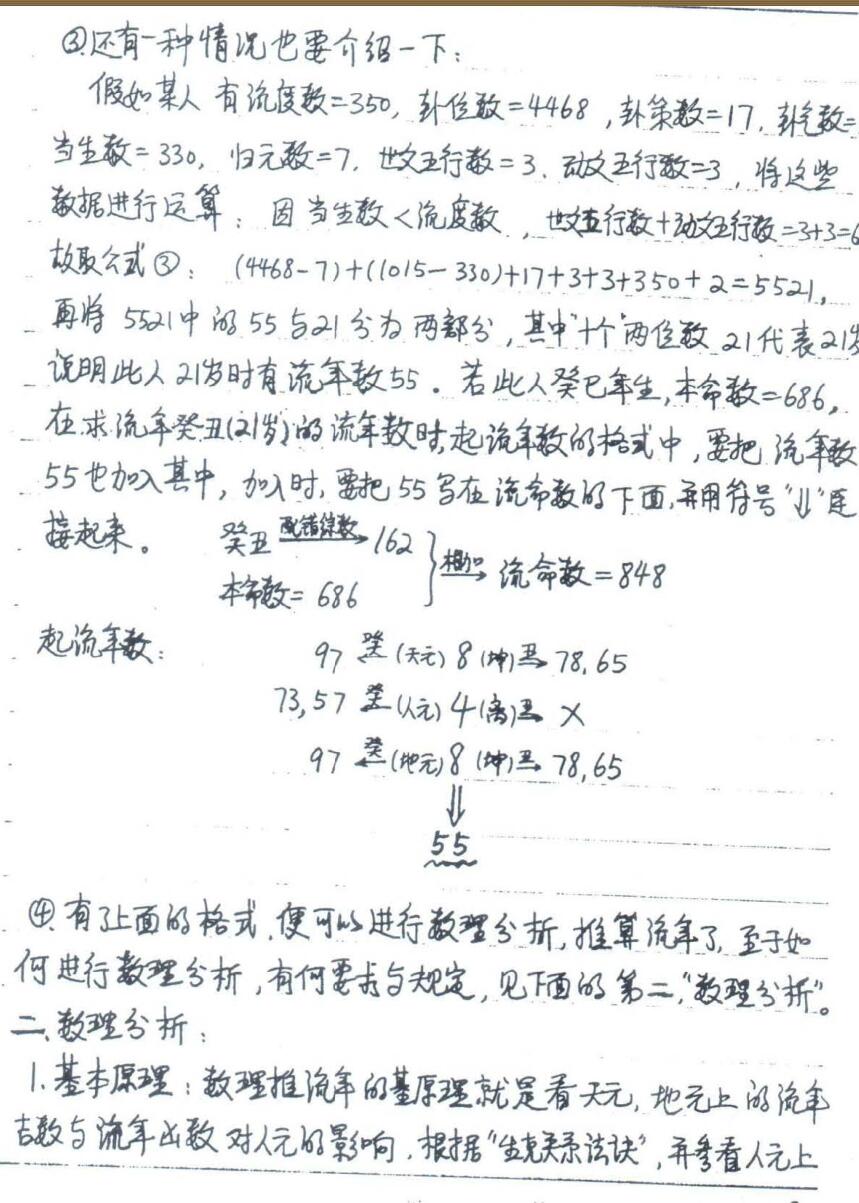 ③.还有一种情况也要介绍一下：
假如某人有流度数=350, 卦位数=4468, 卦策数=17, 卦气数=
当生数=330, 归元数=7, 世爻五行数=3, 动爻五行数=3, 将这些
数据进行运算：因当生数<流度数, 世爻五行数+动爻五行数=3+3=6
故取公式③：(4468-7)+(1015-330)+17+3+3+350+2=5521,
再将5521中的55与21分为两部分, 其中"十个"两位数21代表21岁
说明此人21岁时有流年数55。若此人癸巳年生,本命数=686,
在求流年癸丑(21岁)的流年数时,起流年数的格式中, 要把流年数
55也加入其中, 加入时, 要把55写在流命数的下面,并用符号"⇓"连
接起来。
癸丑 配错综数→ 162 } 相加→ 流命数=848
本命数=686
起流年数：
97 ←癸 (天元) 8 (坤) 丑→ 78,65
73,57 ←癸 (人元) 4 (离) 丑→ ×
97 ←癸 (地元) 8 (坤) 丑→ 78,65
⇓
55
④.有了上面的格式,便可以进行数理分析,推算流年了,至于如
何进行数理分析,有何要求与规定,见下面的第二,"数理分析"。
二、数理分析：
1.基本原理：数理推流年的基原理就是看天元,地元上的流年
吉数与流年凶数对人元的影响,根据"生克关系法诀",并参看人元上